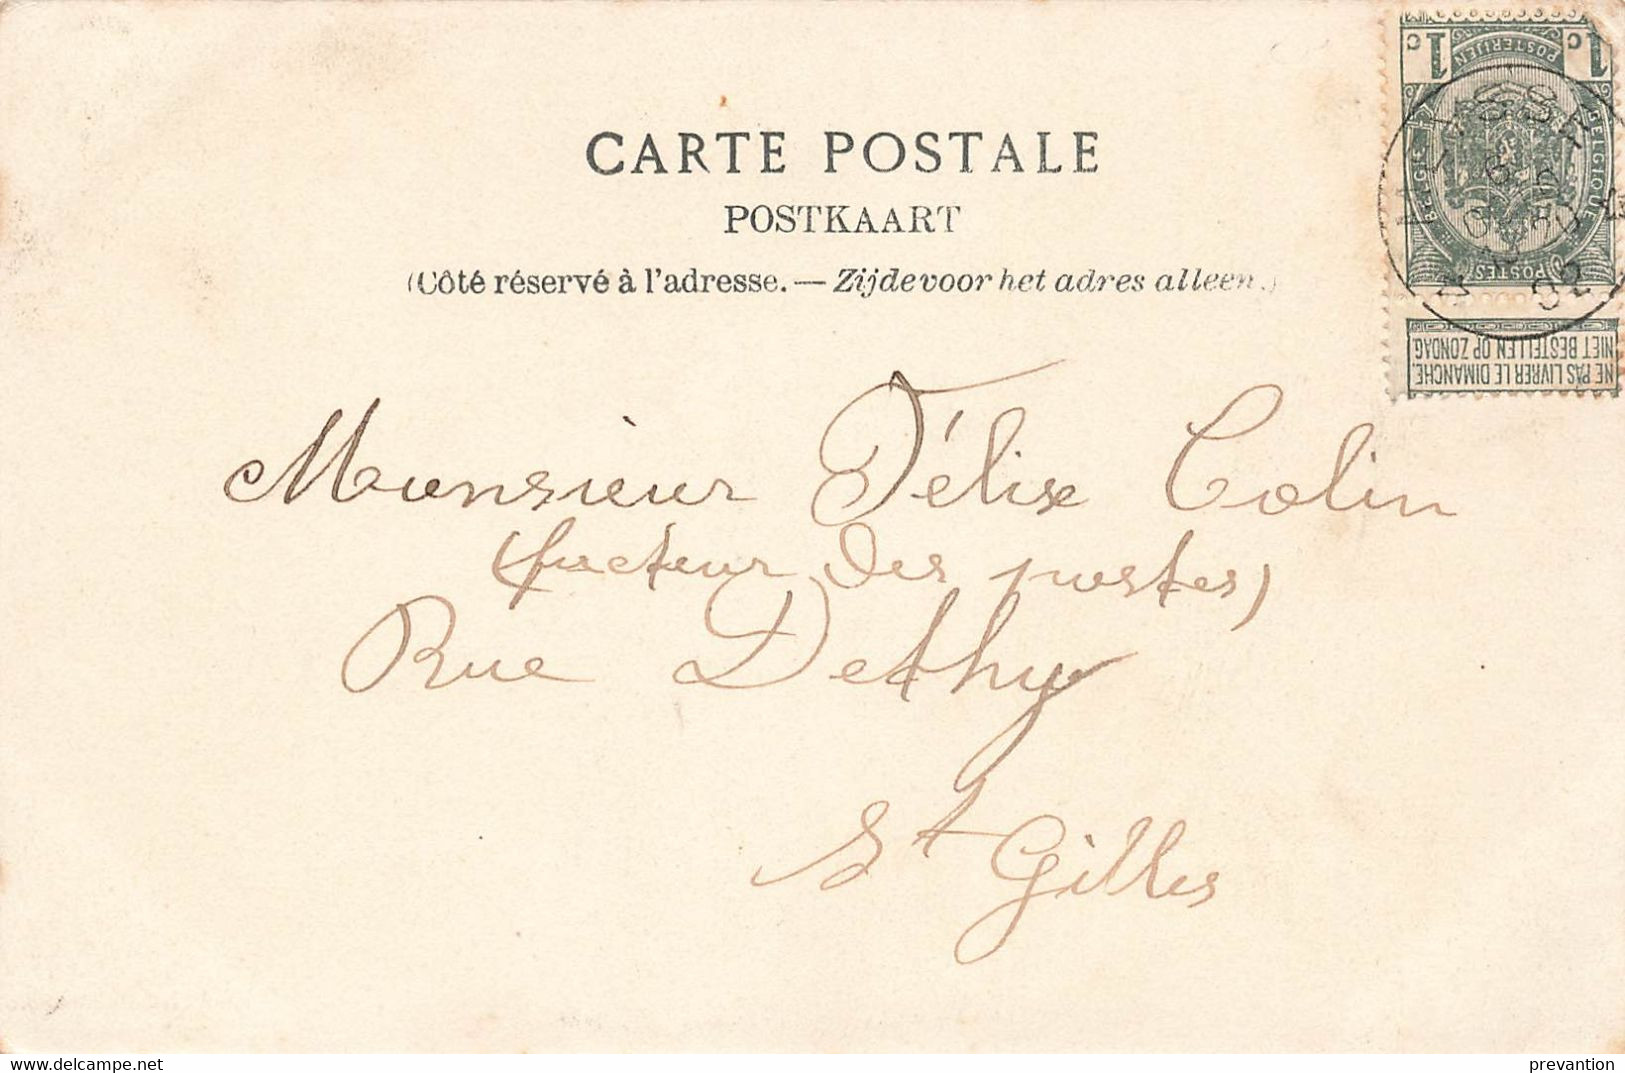 CARTE POSTALE
POSTKAART
(Côté réservé à l'adresse. — Zijde voor het adres alleen.)
1c 1c
POSTERIJEN
BELGIE BELGIQUE
POSTES
NIET BESTELLEN OP ZONDAG
NE PAS LIVRER LE DIMANCHE.
Monsieur Félix Colin
(facteur des postes)
Rue Dethy
St Gilles
www.delcampe.net
prevantion